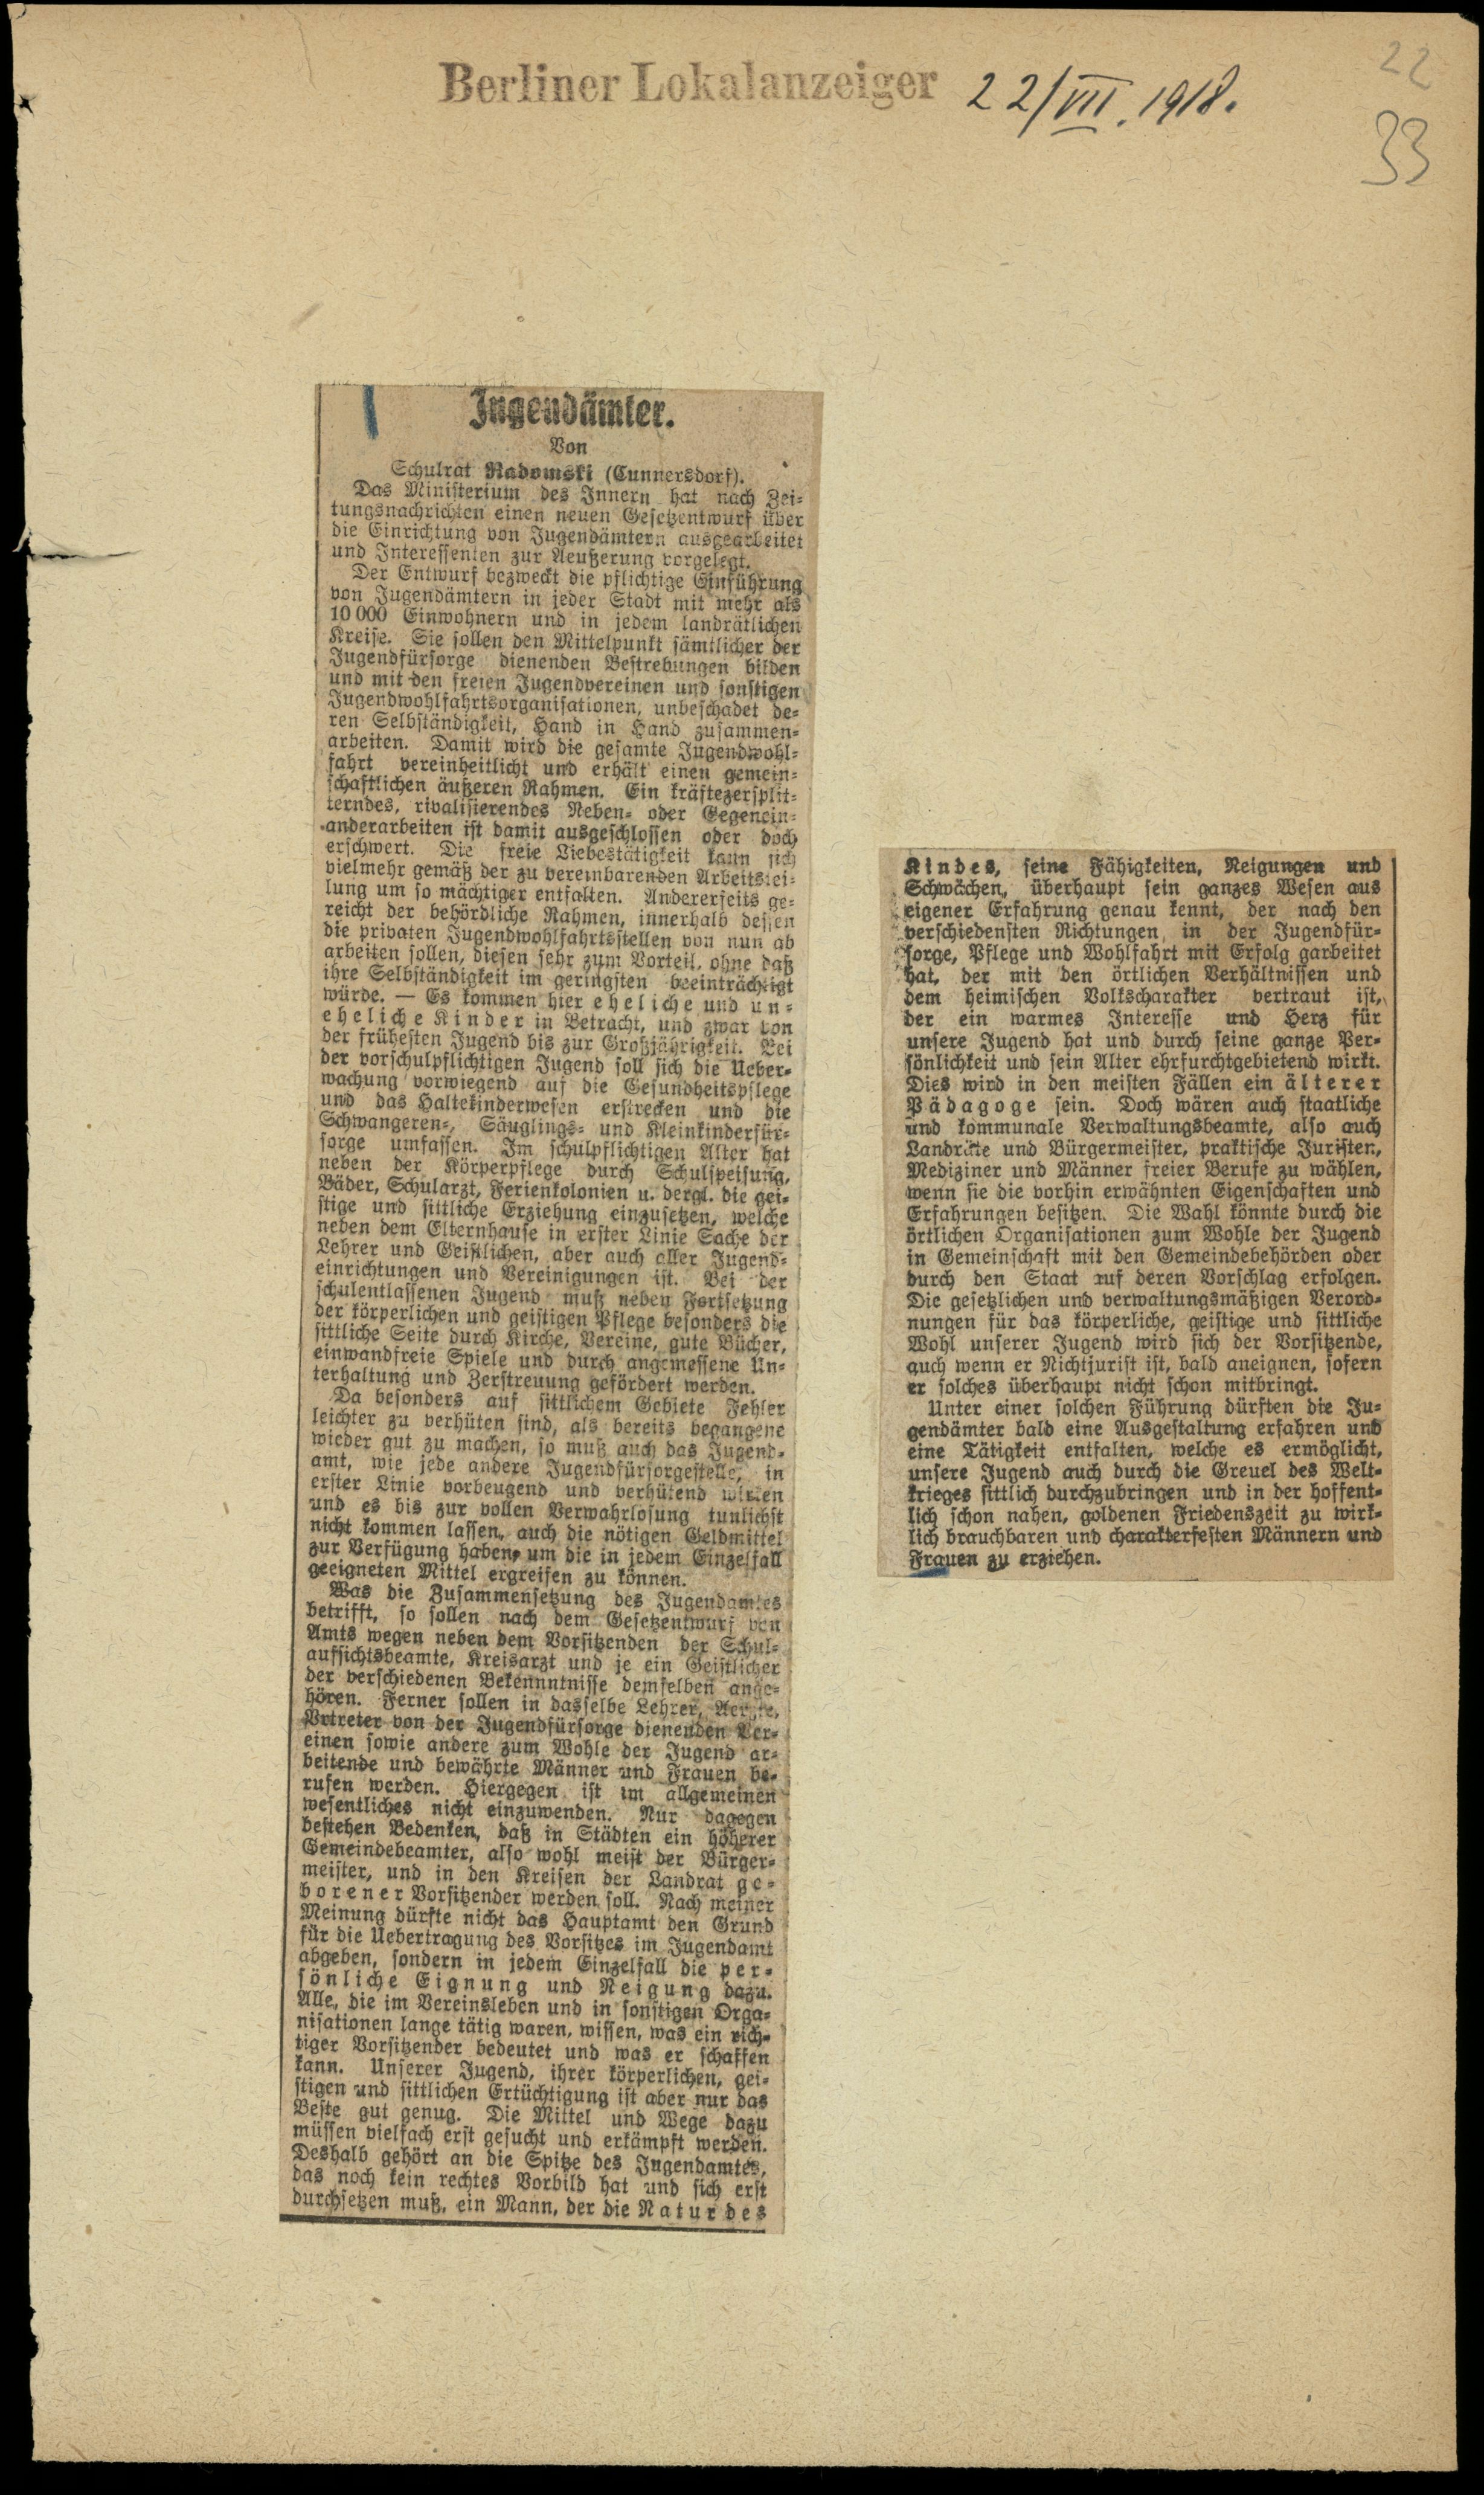 Berliner Lokalanzeiger 22/VII. 1918.
22
33
Jugendämter.
Von
Schulrat Radomski (Cunnersdorf).
Das Ministerium des Innern hat nach Zei-
tungsnachrichten einen neuen Gesetzentwurf über
die Einrichtung von Jugendämtern ausgearbeitet
und Interessenten zur Aeußerung vorgelegt.
Der Entwurf bezweckt die pflichtige Einführung
von Jugendämtern in jeder Stadt mit mehr als
10 000 Einwohnern und in jedem landrätlichen
Kreise. Sie sollen den Mittelpunkt sämtlicher der
Jugendfürsorge dienenden Bestrebungen bilden
und mit den freien Jugendvereinen und sonstigen
Jugendwohlfahrtsorganisationen, unbeschadet de-
ren Selbständigkeit, Hand in Hand zusammen-
arbeiten. Damit wird die gesamte Jugendwohl-
fahrt vereinheitlicht und erhält einen gemein-
schaftlichen äußeren Rahmen. Ein kräftezersplit-
terndes, rivalisierendes Neben- oder Gegenein-
anderarbeiten ist damit ausgeschlossen oder doch
erschwert. Die freie Liebestätigkeit kann sich
vielmehr gemäß der zu vereinbarenden Arbeitstei-
lung um so mächtiger entfalten. Andererseits ge-
reicht der behördliche Rahmen, innerhalb dessen
die privaten Jugendwohlfahrtsstellen von nun ab
arbeiten sollen, diesen sehr zum Vorteil, ohne daß
ihre Selbständigkeit im geringsten beeinträchtigt
würde. — Es kommen hier eheliche und un-
eheliche Kinder in Betracht, und zwar von
der frühesten Jugend bis zur Großjährigkeit. Bei
der vorschulpflichtigen Jugend soll sich die Ueber-
wachung vorwiegend auf die Gesundheitspflege
und das Haltekinderwesen erstrecken und die
Schwangeren-, Säuglings- und Kleinkinderfür-
sorge umfassen. Im schulpflichtigen Alter hat
neben der Körperpflege durch Schulspeisung,
Bäder, Schularzt, Ferienkolonien u. dergl. die gei-
stige und sittliche Erziehung einzusetzen, welche
neben dem Elternhause in erster Linie Sache der
Lehrer und Geistlichen, aber auch aller Jugend-
einrichtungen und Vereinigungen ist. Bei der
schulentlassenen Jugend muß neben Fortsetzung
der körperlichen und geistigen Pflege besonders die
sittliche Seite durch Kirche, Vereine, gute Bücher,
einwandfreie Spiele und durch angemessene Un-
terhaltung und Zerstreuung gefördert werden.
Da besonders auf sittlichem Gebiete Fehler
leichter zu verhüten sind, als bereits begangene
wieder gut zu machen, so muß auch das Jugend-
amt, wie jede andere Jugendfürsorgestelle, in
erster Linie vorbeugend und verhütend wirken
und es bis zur vollen Verwahrlosung tunlichst
nicht kommen lassen, auch die nötigen Geldmittel
zur Verfügung haben, um die in jedem Einzelfall
geeigneten Mittel ergreifen zu können.
Was die Zusammensetzung des Jugendamtes
betrifft, so sollen nach dem Gesetzentwurf von
Amts wegen neben dem Vorsitzenden der Schul-
aufsichtsbeamte, Kreisarzt und je ein Geistlicher
der verschiedenen Bekennntnisse demselben ange-
hören. Ferner sollen in dasselbe Lehrer, Aerzte,
Vrtreter von der Jugendfürsorge dienenden Ver-
einen sowie andere zum Wohle der Jugend ar-
beitende und bewährte Männer und Frauen be-
rufen werden. Hiergegen ist im allgemeinen
wesentliches nicht einzuwenden. Nur dagegen
bestehen Bedenken, daß in Städten ein höherer
Gemeindebeamter, also wohl meist der Bürger-
meister, und in den Kreisen der Landrat ge-
borener Vorsitzender werden soll. Nach meiner
Meinung dürfte nicht das Hauptamt den Grund
für die Uebertragung des Vorsitzes im Jugendamt
abgeben, sondern in jedem Einzelfall die per-
sönliche Eignung und Neigung dazu.
Alle, die im Vereinsleben und in sonstigen Orga-
nisationen lange tätig waren, wissen, was ein rich-
tiger Vorsitzender bedeutet und was er schaffen
kann. Unserer Jugend, ihrer körperlichen, gei-
stigen und sittlichen Ertüchtigung ist aber nur das
Beste gut genug. Die Mittel und Wege dazu
müssen vielfach erst gesucht und erkämpft werden.
Deshalb gehört an die Spitze des Jugendamtes,
das noch kein rechtes Vorbild hat und sich erst
durchsetzen muß, ein Mann, der die Natur des
Kindes, seine Fähigkeiten, Neigungen und
Schwächen, überhaupt sein ganzes Wesen aus
eigener Erfahrung genau kennt, der nach den
verschiedensten Richtungen in der Jugendfür-
sorge, Pflege und Wohlfahrt mit Erfolg garbeitet
hat, der mit den örtlichen Verhältnissen und
dem heimischen Volkscharakter vertraut ist,
der ein warmes Interesse und Herz für
unsere Jugend hat und durch seine ganze Per-
sönlichkeit und sein Alter ehrfurchtgebietend wirkt.
Dies wird in den meisten Fällen ein älterer
Pädagoge sein. Doch wären auch staatliche
und kommunale Verwaltungsbeamte, also auch
Landräte und Bürgermeister, praktische Juristen,
Mediziner und Männer freier Berufe zu wählen,
wenn sie die vorhin erwähnten Eigenschaften und
Erfahrungen besitzen. Die Wahl könnte durch die
örtlichen Organisationen zum Wohle der Jugend
in Gemeinschaft mit den Gemeindebehörden oder
durch den Staat auf deren Vorschlag erfolgen.
Die gesetzlichen und verwaltungsmäßigen Verord-
nungen für das körperliche, geistige und sittliche
Wohl unserer Jugend wird sich der Vorsitzende,
auch wenn er Nichtjurist ist, bald aneignen, sofern
er solches überhaupt nicht schon mitbringt.
Unter einer solchen Führung dürften die Ju-
gendämter bald eine Ausgestaltung erfahren und
eine Tätigkeit entfalten, welche es ermöglicht,
unsere Jugend auch durch die Greuel des Welt-
krieges sittlich durchzubringen und in der hoffent-
lich schon nahen, goldenen Friedenszeit zu wirk-
lich brauchbaren und charakterfesten Männern und
Frauen zu erziehen.